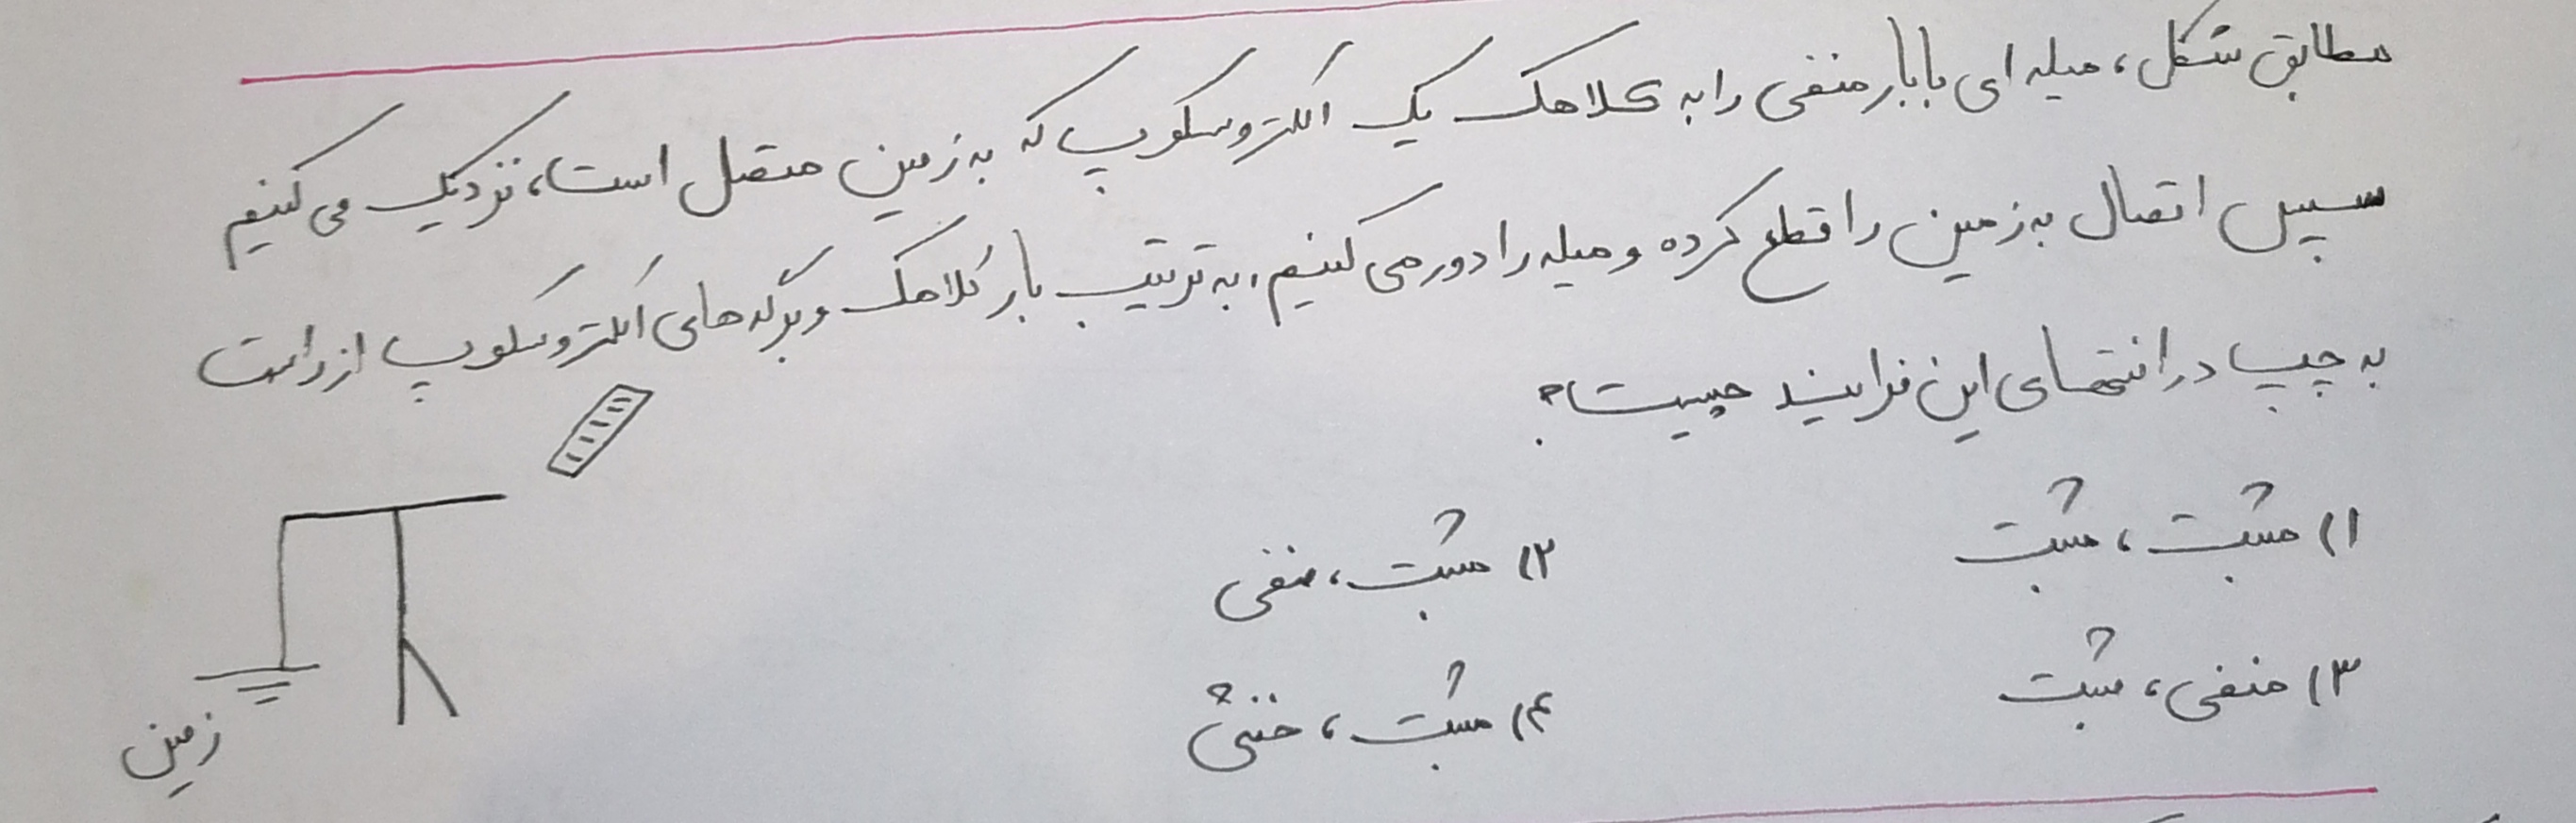 مطابق شکل، میله ای با بار منفی را به کلاهک یک الکتروسکوپ که به زمین متصل است، نزدیک می کنیم
سپس اتصال به زمین را قطع کرده و میله را دور می کنیم، به ترتیب بار کلاهک و برگه های الکتروسکوپ از راست
به چپ در انتهای این فرایند چیست؟
۱) مثبت، مثبت
۲) مثبت، منفی
۳) منفی، مثبت
۴) مثبت، خنثی
زمین